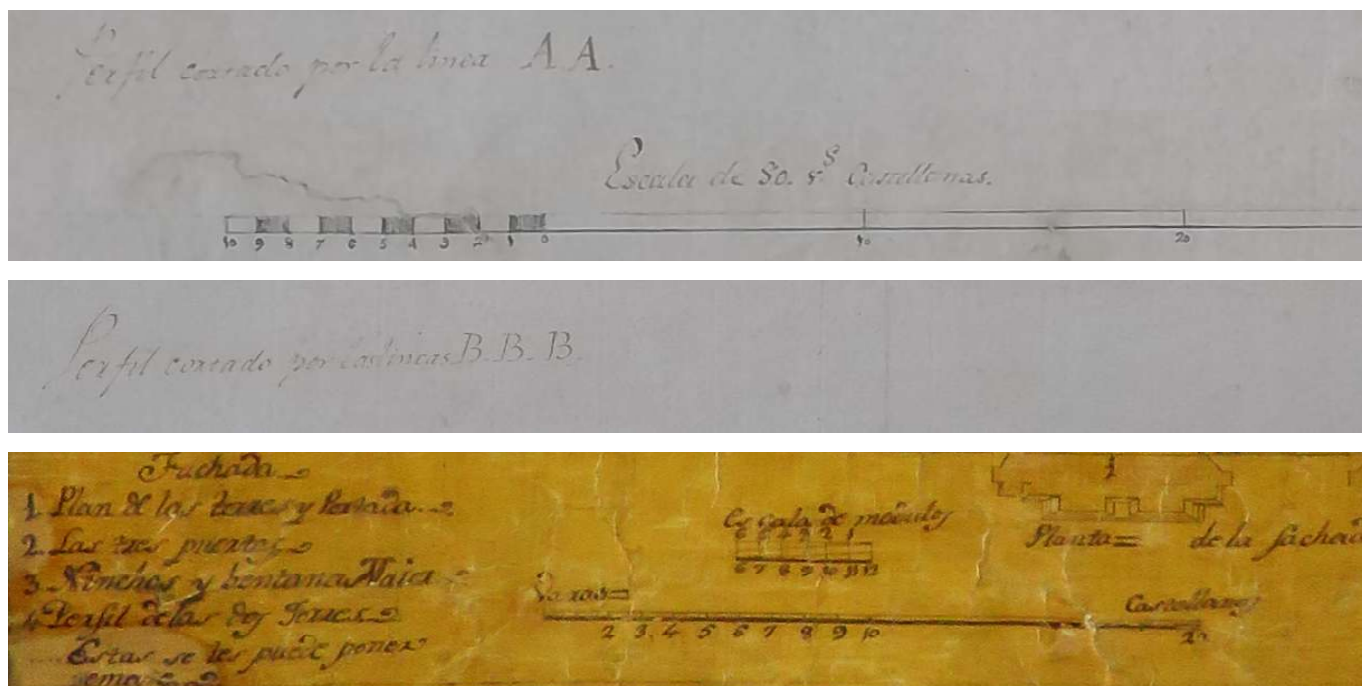 Perfil cortado por la linea A A.
Escala de 80. v.s Castellanas.
10 9 8 7 6 5 4 3 2 1 0 10 20
Perfil cortado por las lineas B. B. B.
Fachada
1 Plan de las torres y Portada
2 Las tres puertas
3 Ninchos y bentana
4 Perfil de las dos Torres
Estas se les puede poner
Escala de modulos
6 5 4 3 2 1
6 7 8 9 10 11 12
Varas
Castellanas
2 3 4 5 6 7 8 9 10 20
1
Planta = de la fachad